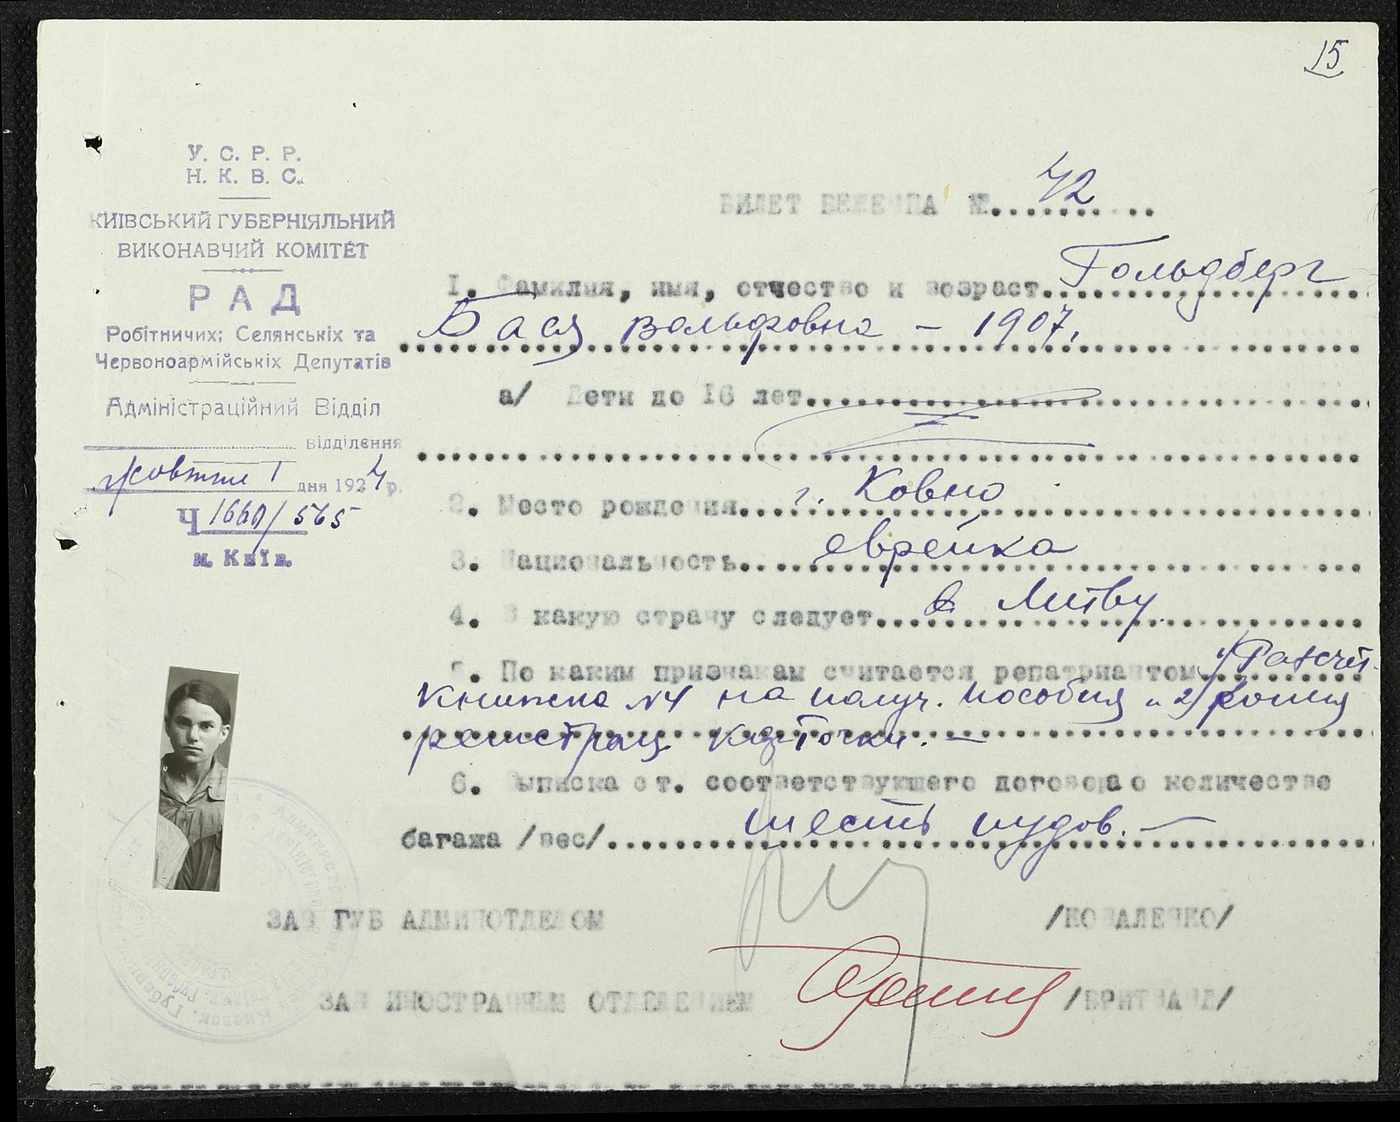 15
У. С. Р. Р.
Н. К. В. С.
КИІВСЬКИЙ ГУБЕРНІЯЛЬНИЙ
ВИКОНАВЧИЙ КОМІТЕТ
РАД
Робітничих; Селянськіх та
Червоноармійськіх Депутатів
Адміністраційний Відділ
відділення
Жовтня 1 дня 1924 р.
Ч 1660/565
м. Київ.
БИЛЕТ БЕЖЕНЦА №...42...
1. Фамилия, имя, отчество и возраст...Гольдберг
Бася Вольфовна – 1907.
а/ Дети до 16 лет...
2. Место рождения...г. Ковно
3. Национальность...еврейка
4. В какую страну следует...в Литву
5. По каким признакам считается репатриантом 1) Расчет.
книжка №4 на получ. пособия и 2) копия
регистрац. карточки. –
6. Выписка от. соответствующего договора о количестве
багажа /вес/...шесть пудов. –
ЗАВ ГУБ АДМИНОТДЕЛОМ /КОВАЛЕНКО/
ЗАВ ИНОСТРАННЫМ ОТДЕЛЕНИЕМ /БРИТВАНД/